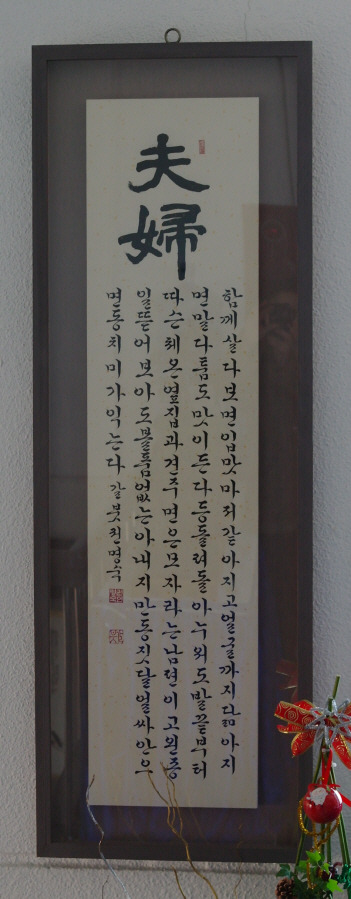 夫婦
함께살다보면입맛마저같아지고얼굴까지닮아지
면말다툼도맛이든다등돌려돌아누워도발끝부터
따슨체온옆집과견주면은모자라는남편이고왼종
일뜯어보아도볼품없는아내지만동짓달얼싸안으
면동치미가익는다 갈붓천명숙